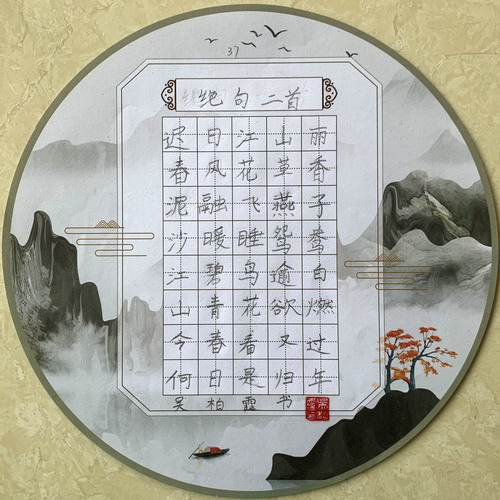 37
绝句二首
迟日江山丽
春风花草香
泥融飞燕子
沙暖睡鸳鸯
江碧鸟逾白
山青花欲燃
今春看又过
何日是归年
吴柏 书